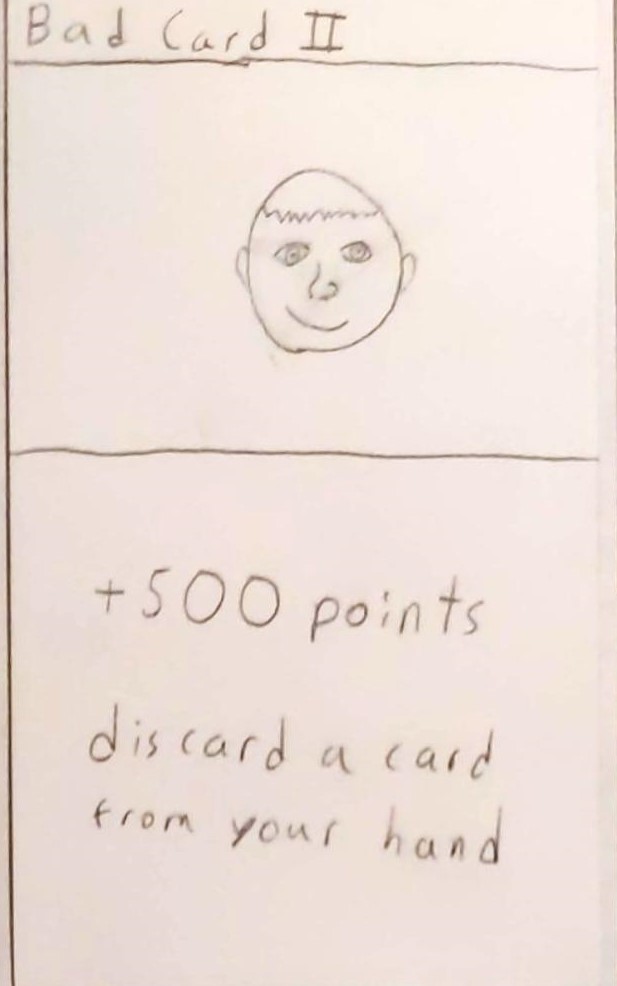 Bad Card II
+500 points
discard a card
from your hand